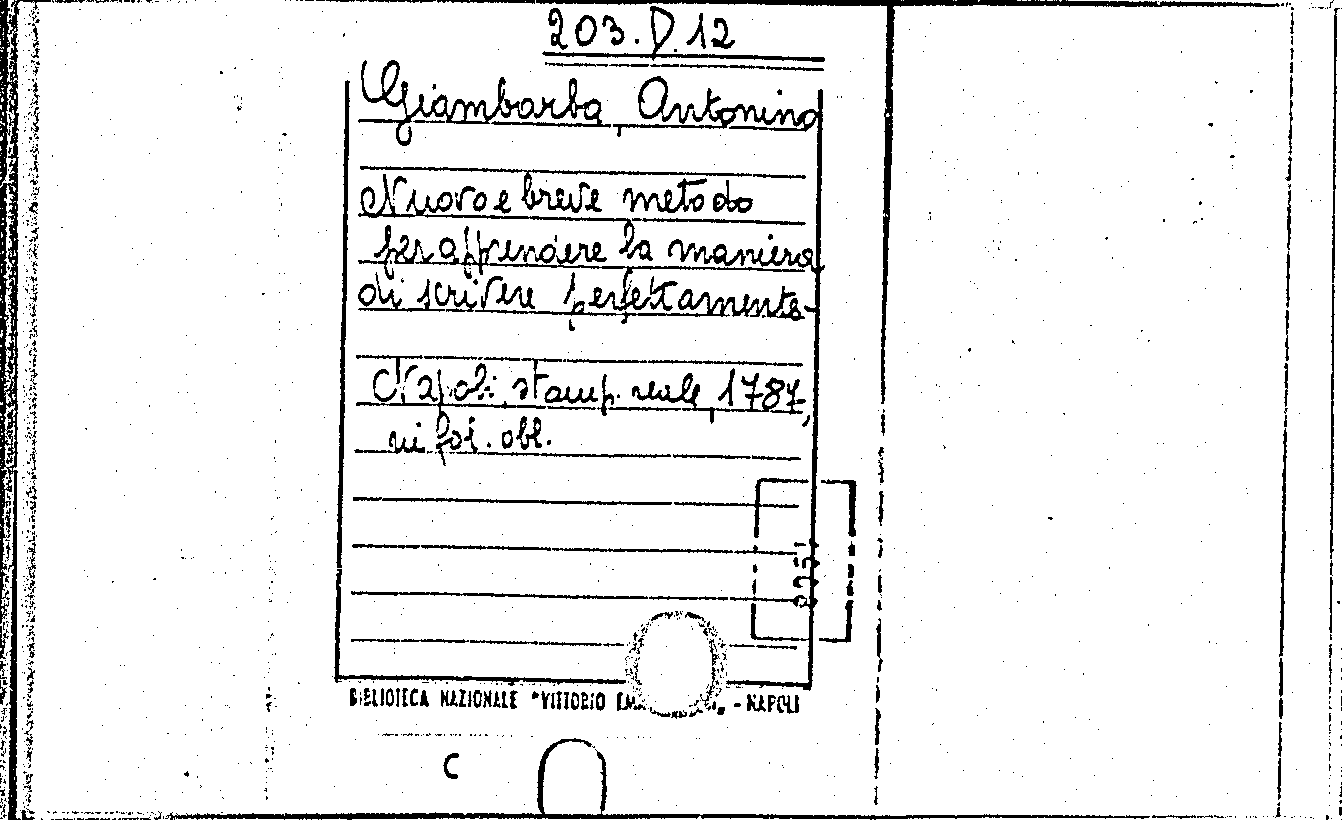 203.D.12
Giambarba, Antonino
Nuovo e breve metodo
per apprendere la maniera
di scrivere perfettamente-
Napoli, stamp. reale, 1787,
in fol. obl.
BIBLIOTECA NAZIONALE "VITTORIO - NAPOLI
C